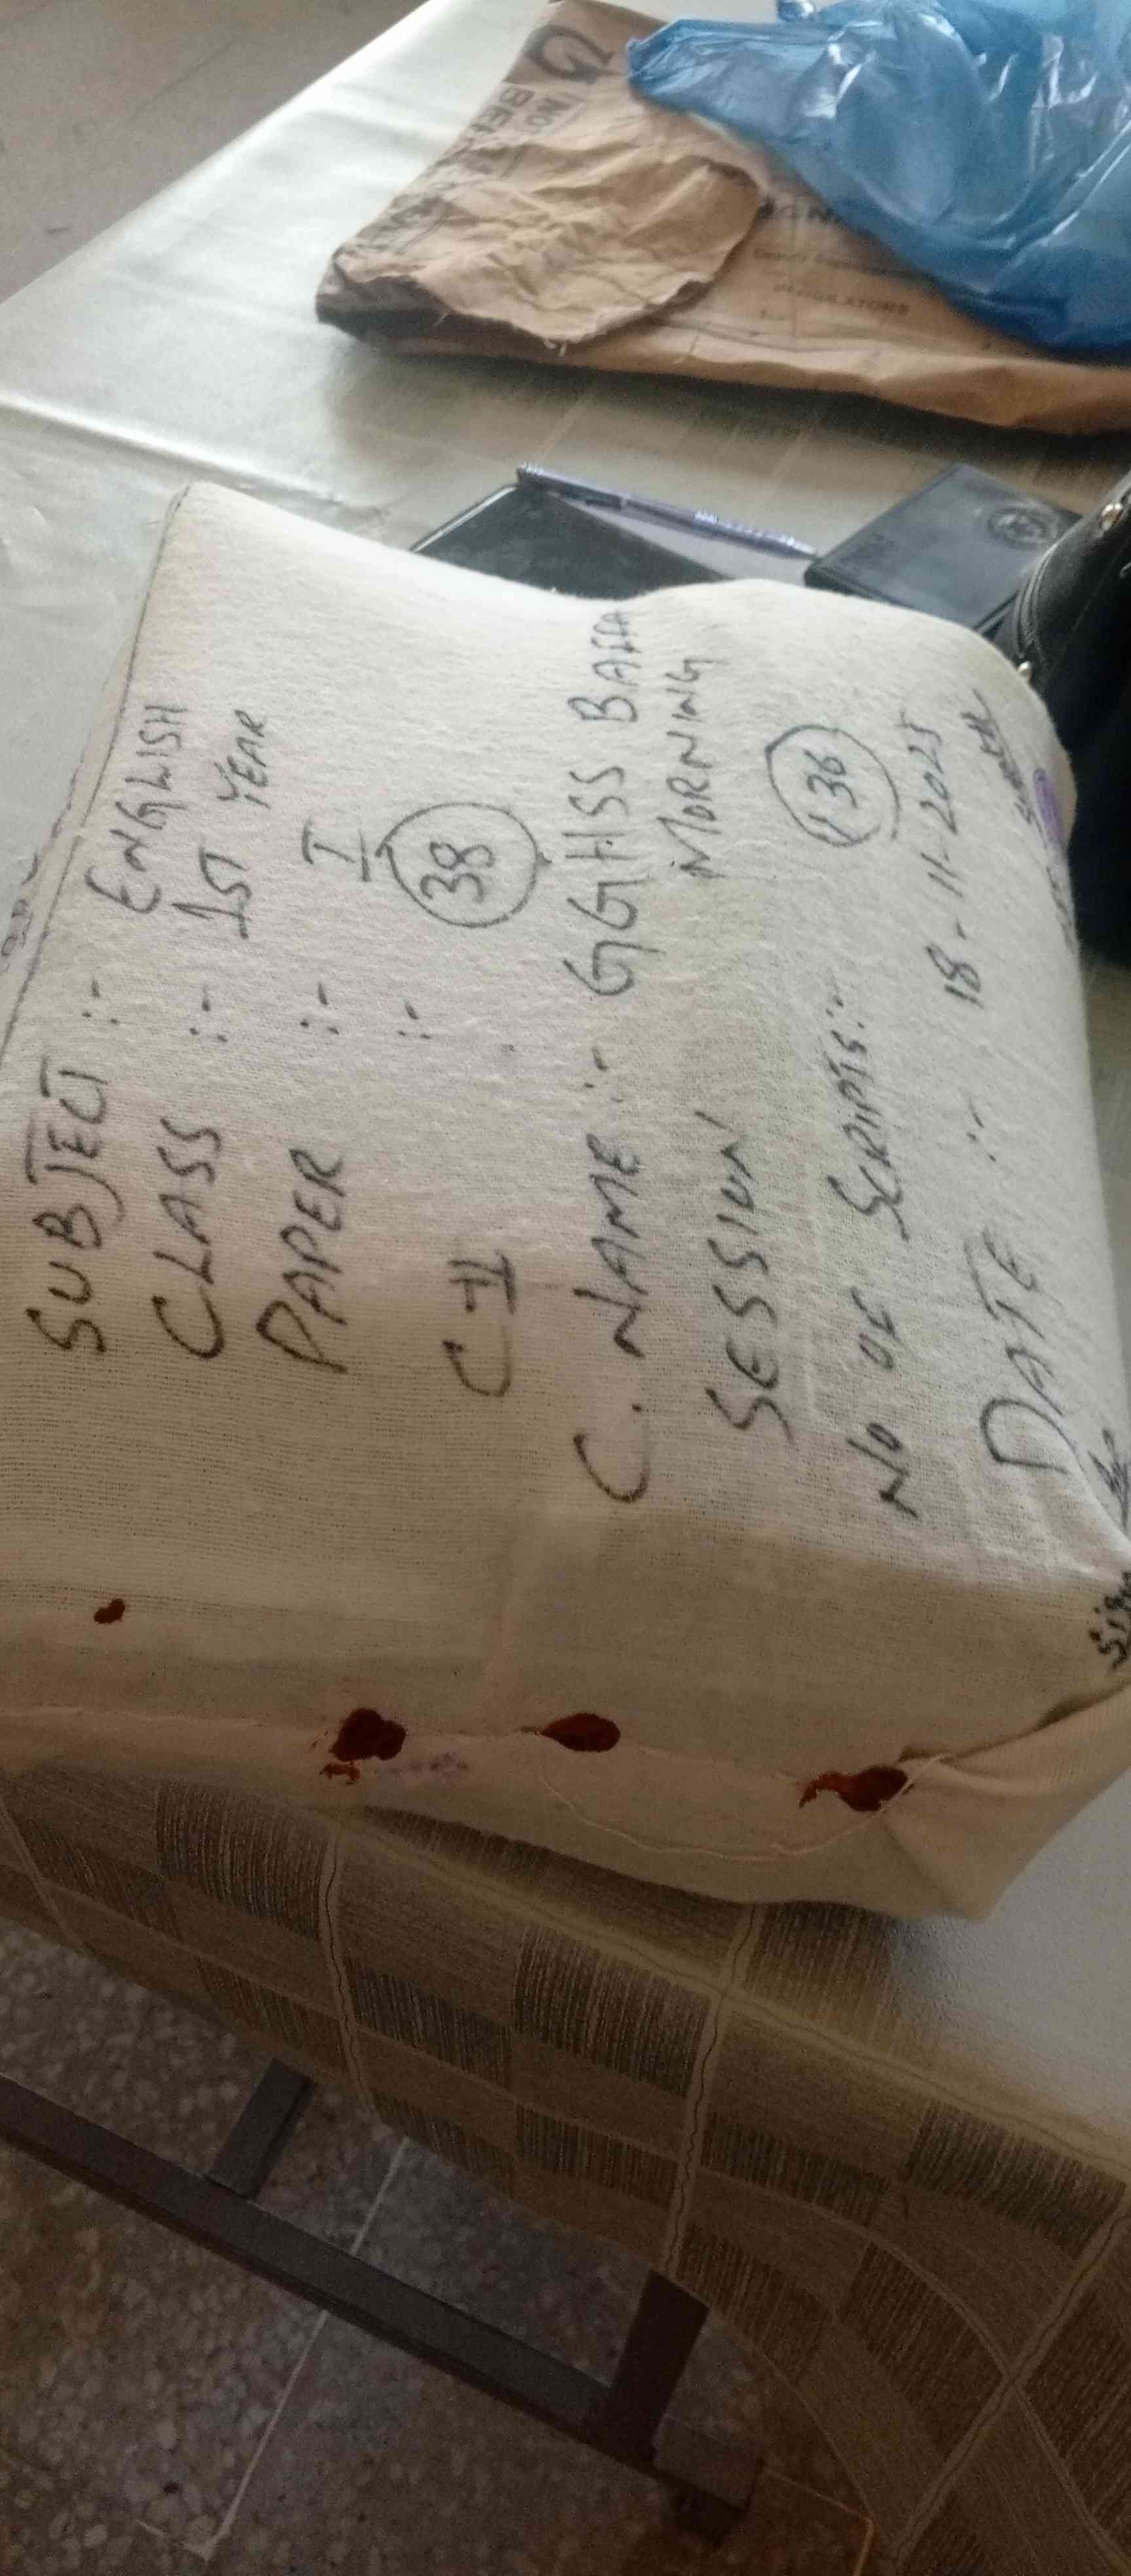 SUBJECT :- ENGLISH
CLASS :- 1ST YEAR
PAPER :- I
C# :- 38
C. NAME :- GGHSS BAFFA
SESSION MORNING
NO OF SCRIPTS:- 136
DATE :- 18-11-2023